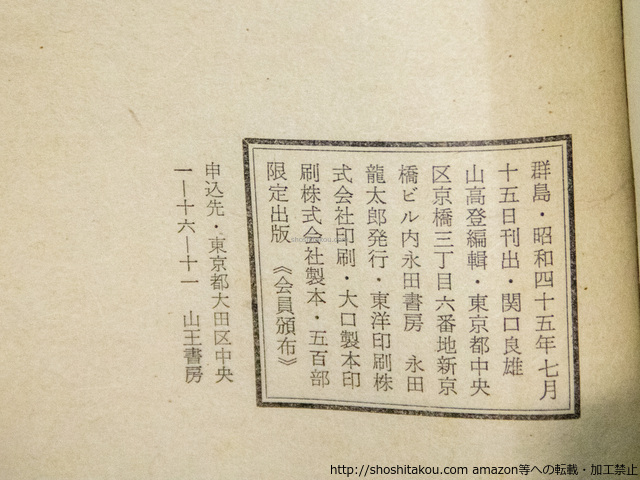 群島・昭和四十五年七月
十五日刊出・関口良雄
山高登編輯・東京都中央
区京橋三丁目六番地新京
橋ビル内永田書房　永田
龍太郎発行・東洋印刷株
式会社印刷・大口製本印
刷株式会社製本・五百部
限定出版　《会員頒布》
申込先・東京都大田区中央
一―十六―十一　山王書房
http://shoshitakou.com amazon等への転載・加工禁止